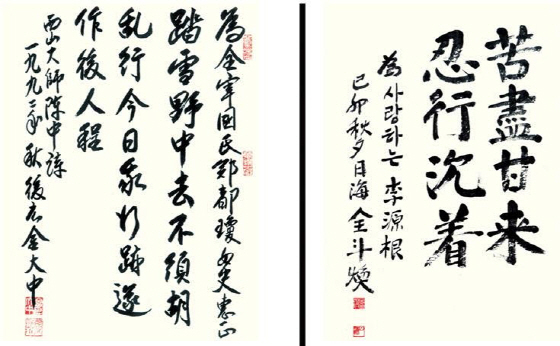 為全宰国氏郑都瓊女史惠正
踏雪野中去不須胡
乱行今日我行跡遂
作後人程
西山大師陣中詩
一九九三年秋 後広金大中
苦盡甘来
忍行沉着
為사랑하는 李源根
己卯秋夕 日海 全斗煥